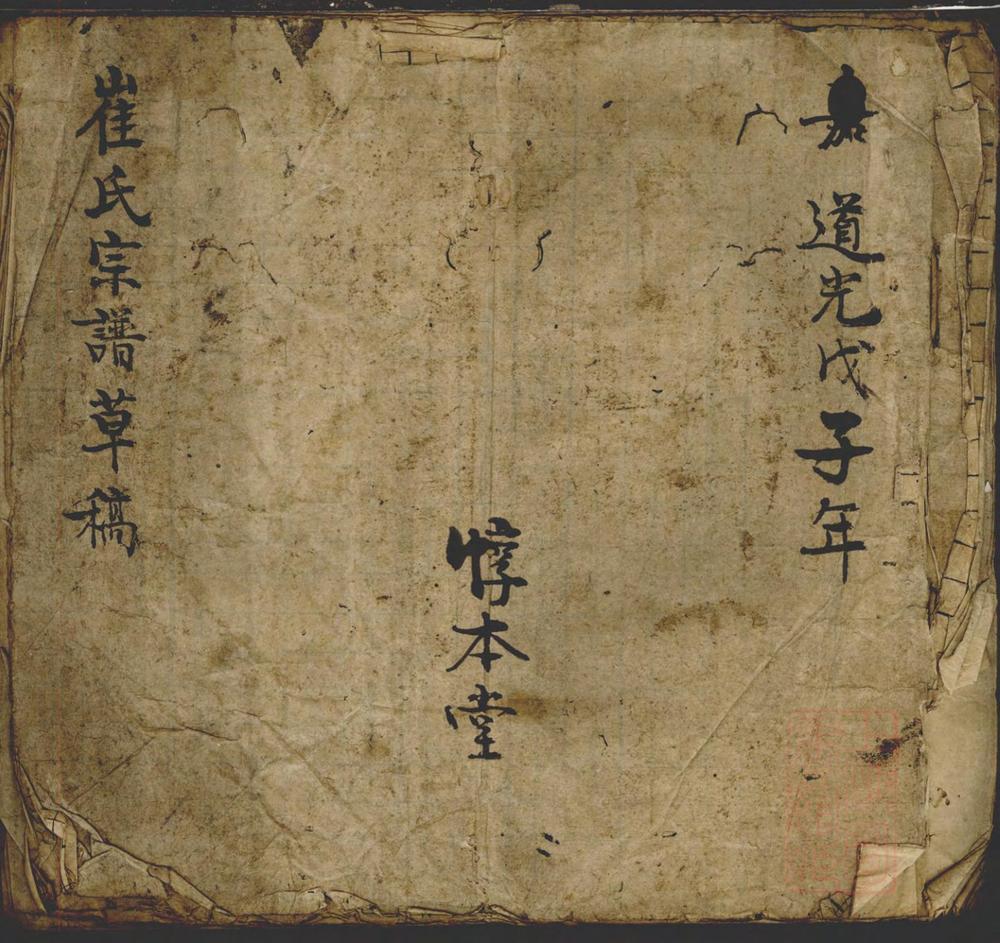 嘉 道光戊子年
惇本堂
崔氏宗譜草稿